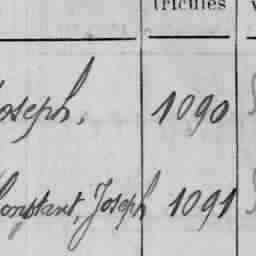 tricules
Joseph, 1090
Constant, Joseph 1091